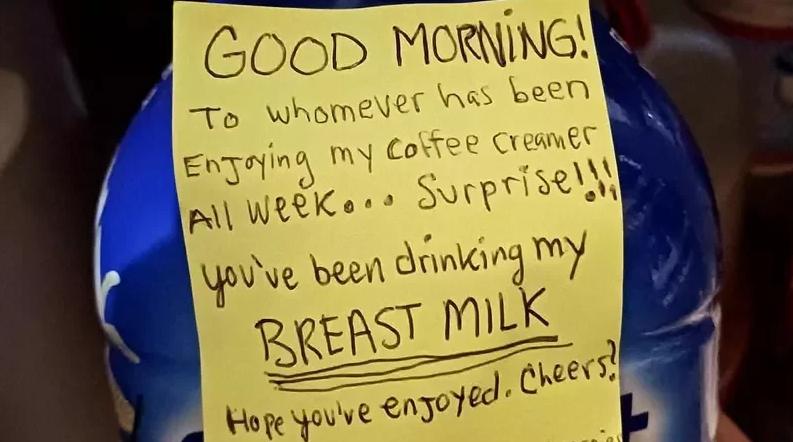 GOOD MORNING!
To whomever has been
Enjoying my coffee creamer
All week... Surprise!!!
you've been drinking my
BREAST MILK
Hope you've enjoyed. Cheers!